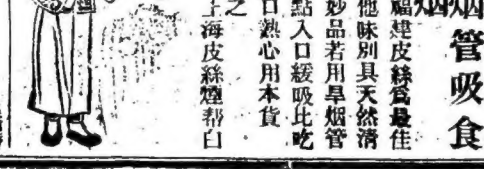 烟管吸食
烟
福建皮絲爲最佳
他味別具天然清
妙品若用旱烟管
點入口緩吸比吃
日熱心用本貨
之
上海皮絲煙帮白